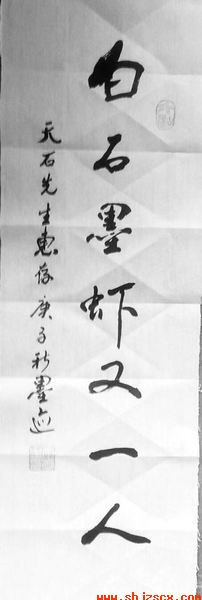 白石墨虾又一人
天石先生惠存庚子秋墨迹
www.shjzscx.com